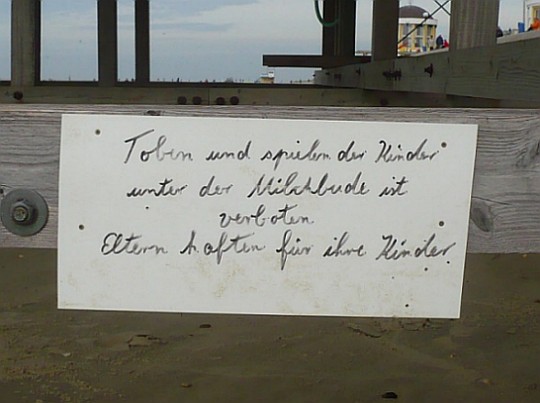 Toben und spielen der Kinder
unter der Milchbude ist
verboten
Eltern haften für ihre Kinder